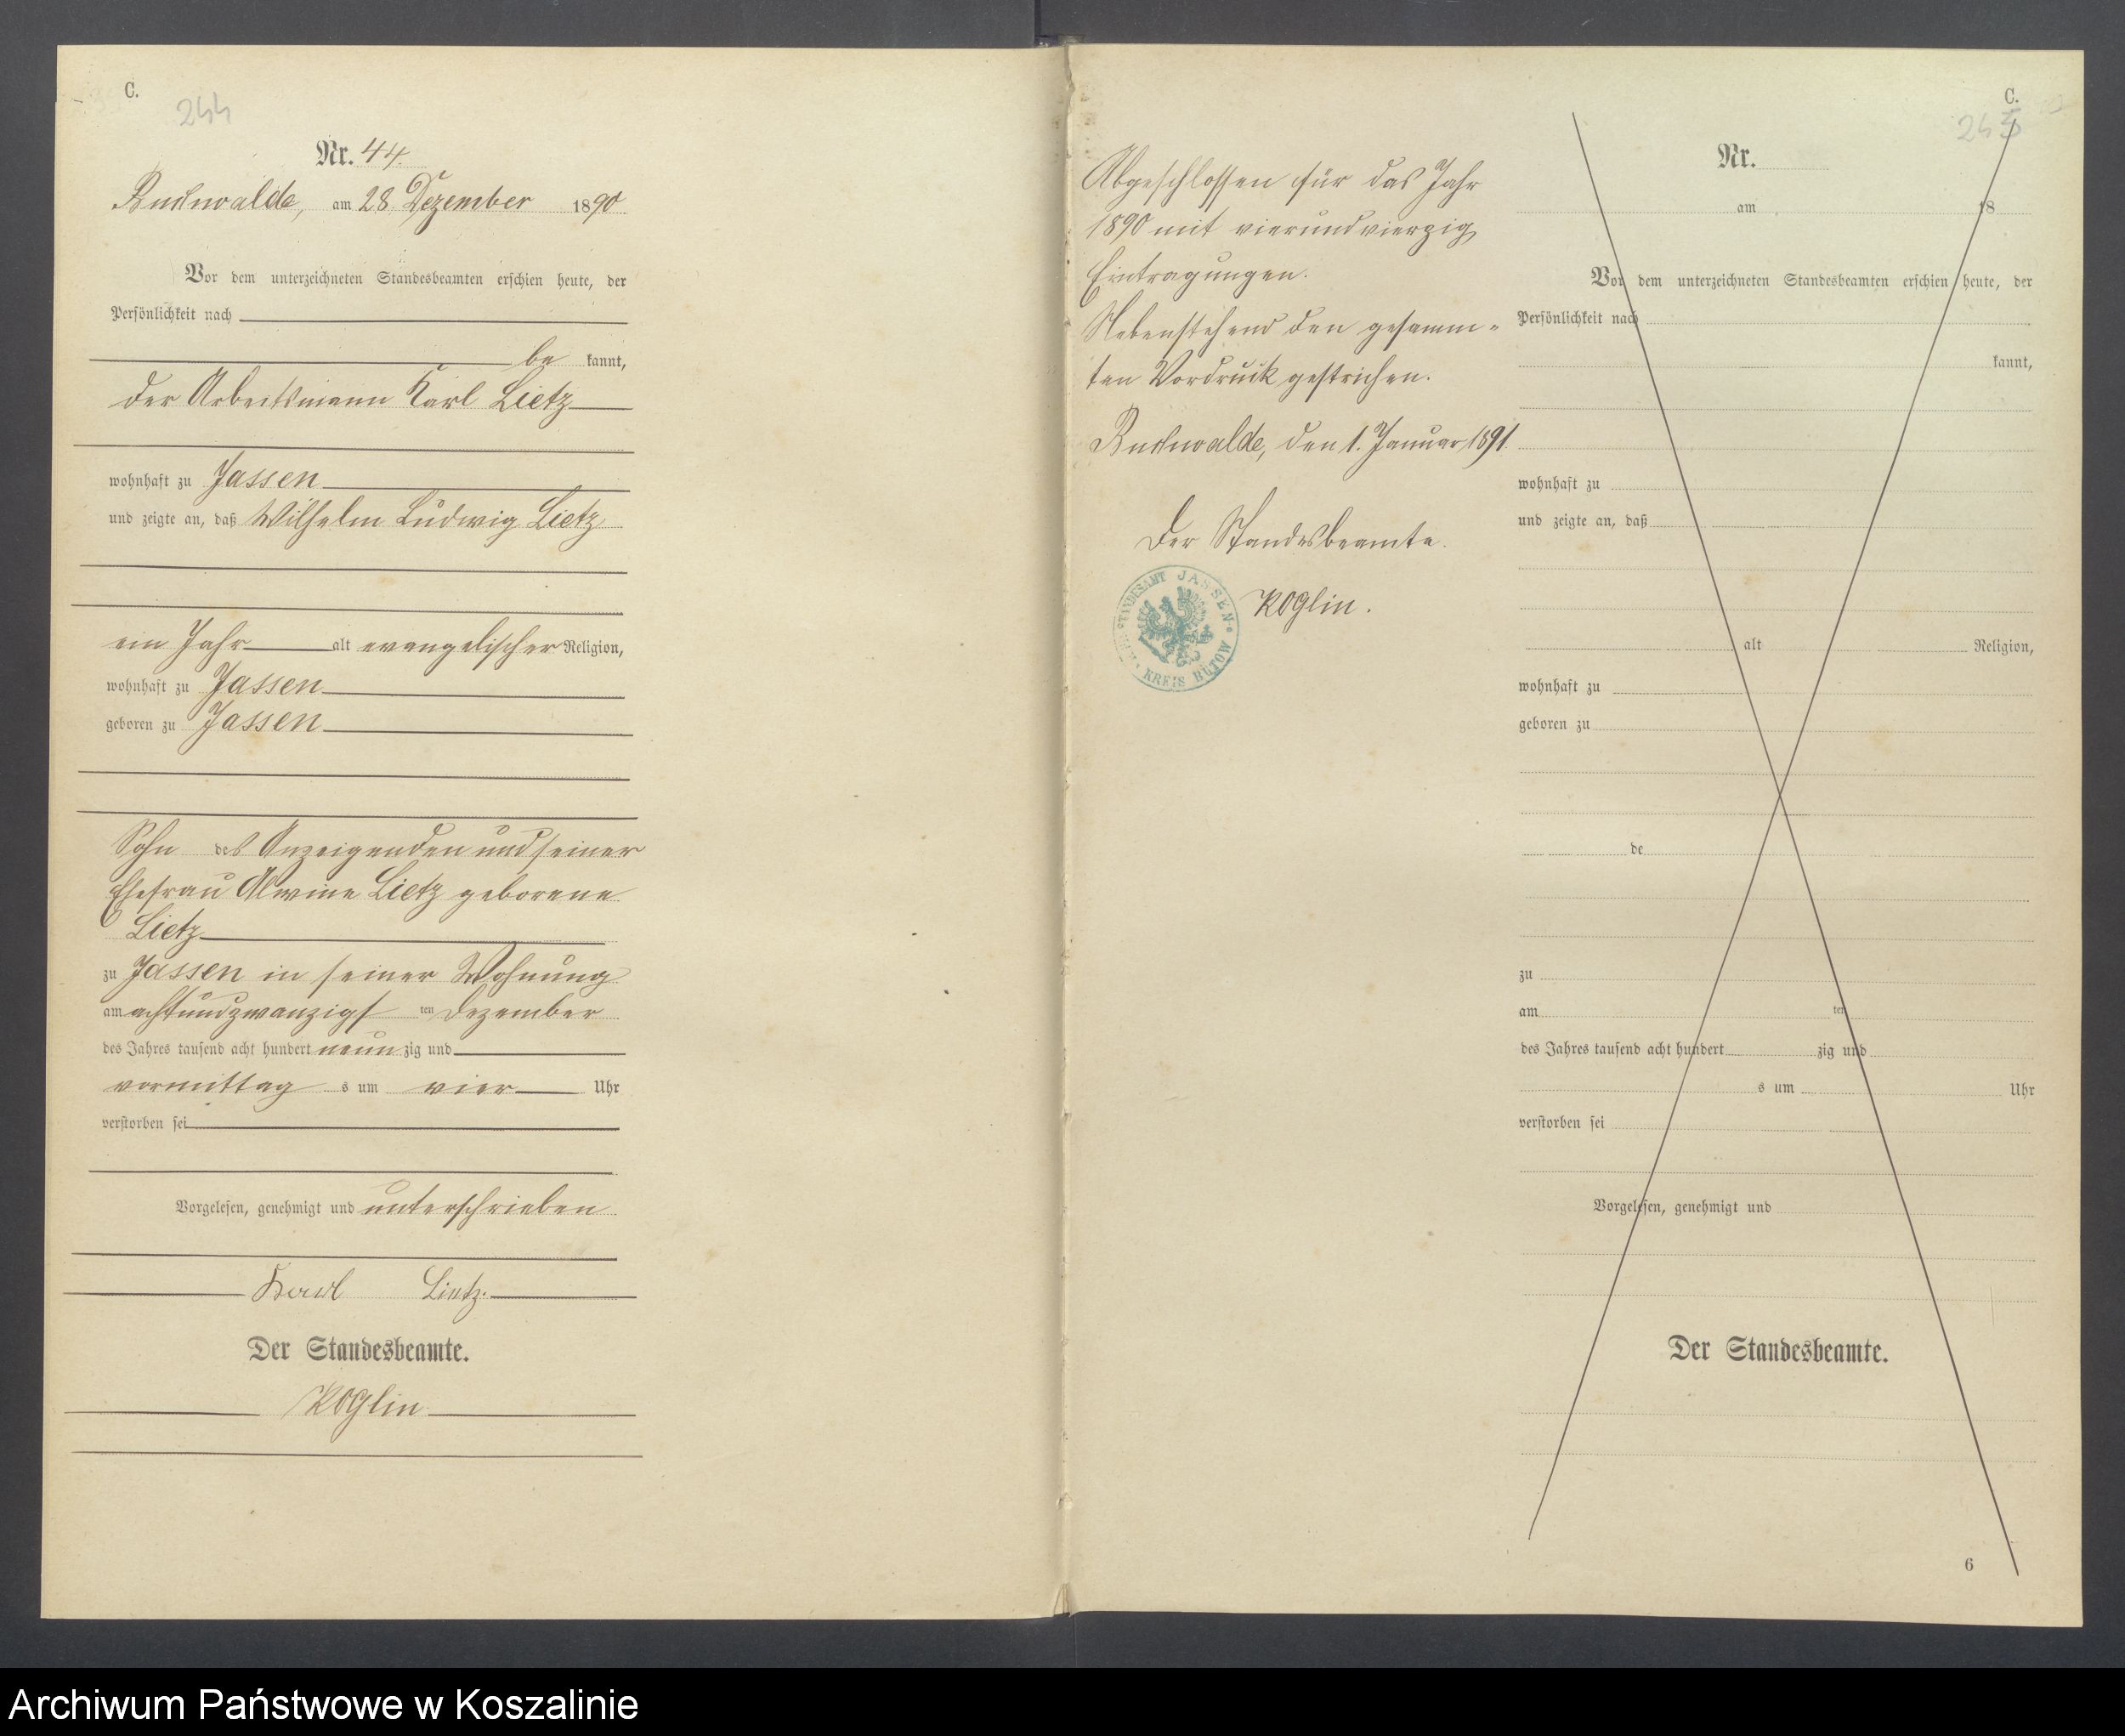 C.
244
Nr. 44.
Buchwalde, am 28. Dezember 1890
Vor dem unterzeichneten Standesbeamten erschien heute, der
Persönlichkeit nach
be kannt,
der Arbeitsmann Karl Lietz
wohnhaft zu Jassen
und zeigte an, daß Wilhelm Ludwig Lietz
ein Jahr alt evangelischer Religion,
wohnhaft zu Jassen
geboren zu Jassen
Sohn des Anzeigenden und seiner
Ehefrau Alwine Lietz geborene
Lietz
zu Jassen in seiner Wohnung
am achtundzwanzigsten Dezember
des Jahres tausend acht hundert neunzig und
vormittags um vier Uhr
verstorben sei
Vorgelesen, genehmigt und unterschrieben
Karl Lietz.
Der Standesbeamte.
Röglin
Abgeschlossen für das Jahr
1890 mit vierundvierzig
Eintragungen.
Nebenstehend den gesamm-
ten Vordruck gestrichen.
Buchwalde, den 1. Januar 1891.
Der Standesbeamte.
Röglin.
STANDESAMT JASSEN
KREIS BÜTOW
C.
245
Nr.
am 18
Vor dem unterzeichneten Standesbeamten erschien heute, der
Persönlichkeit nach
kannt,
wohnhaft zu
und zeigte an, daß
alt Religion,
wohnhaft zu
geboren zu
de
zu
am ten
des Jahres tausend acht hundert zig und
s um Uhr
verstorben sei
Vorgelesen, genehmigt und
Der Standesbeamte.
6
Archiwum Państwowe w Koszalinie